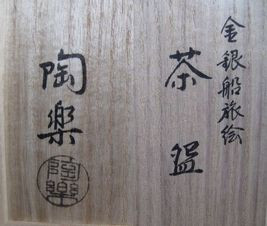 金銀船旅絵
茶盌
陶楽
陶樂